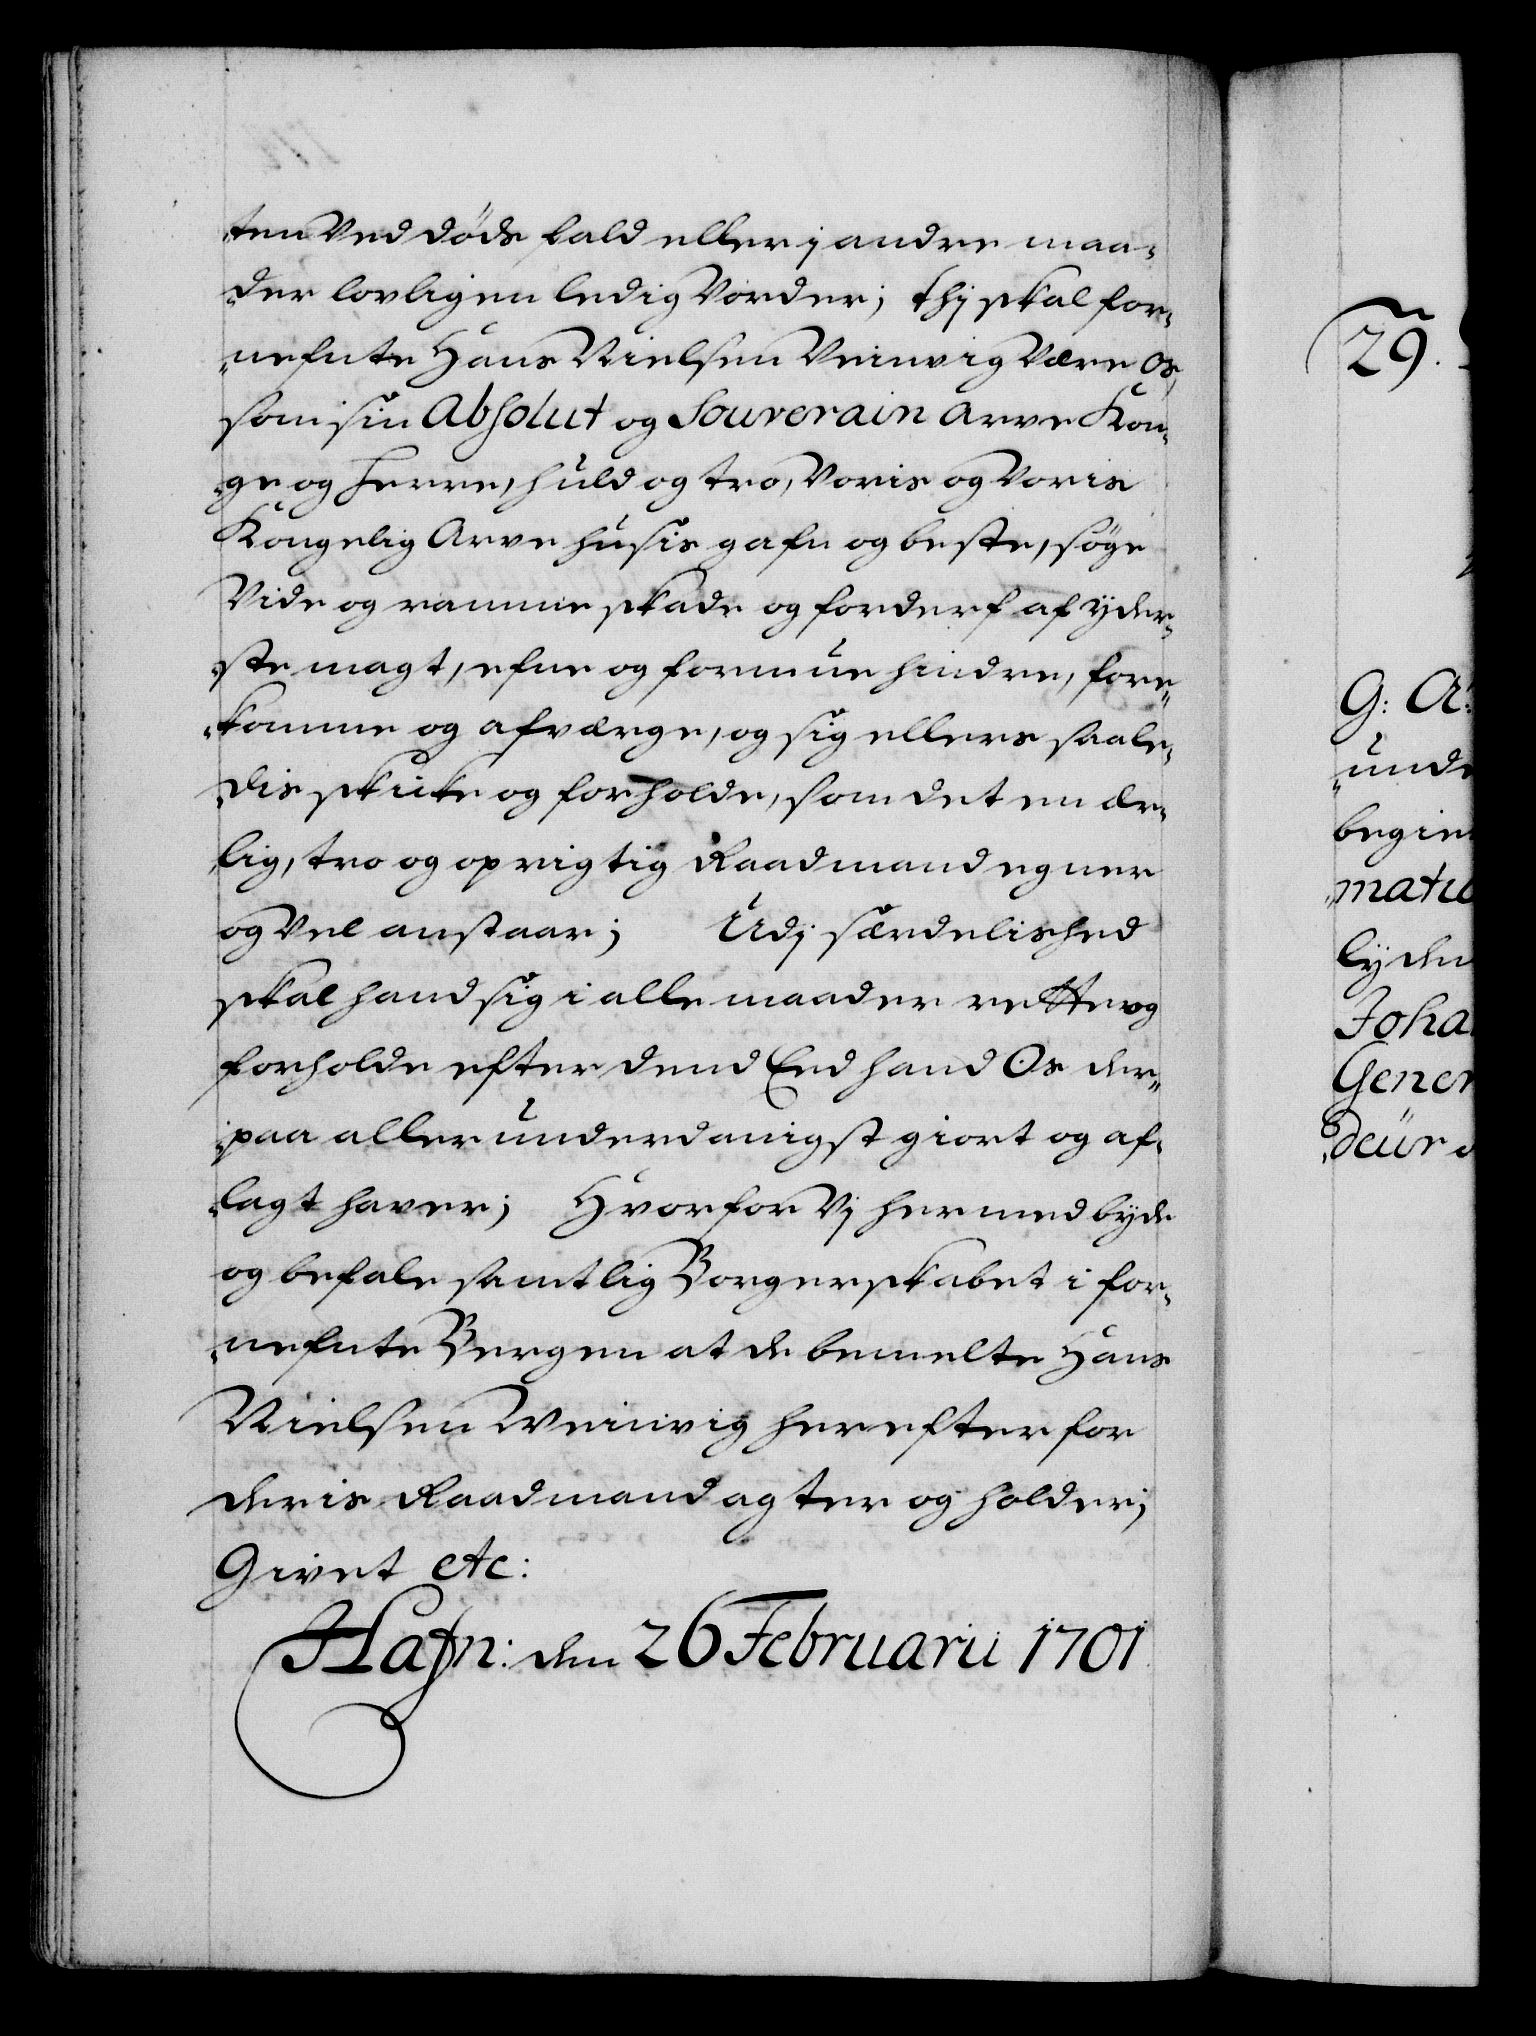 ten ved döds fald eller j andre maa-
der lovligen ledig vorder; thj skal for-
nefnte Hans Nielsen Veinvig være os,
som sin Absolut og Souverain Arve Kon-
ge og Herre, huld og tro, voris og voris
Kongelig Arve husis gafn og beste, søge
vide og ramme skade og forderf af yder-
ste magt, efne og formue hindre, fore-
komme og afværge, og sig ellers saale-
dis skicke og forholde, som det en ær-
lig, tro og oprigtig Raadmand egner
og vel anstaar; Udj særdelished
skal hand sig i alle maader rette og
forholde efter dend Eed hand Os der-
paa allerunderdanigst giort og af-
lagt haver; Hvorfor Vj hermed byde
og befale samtlig Borgerskabet i for-
nefnte Bergen at de bemelte Hans
Nielsen Weinvig herefter for
deris Raadmand agter og holder;
Givet etc:
Hafn: den 26 Februarii 1701
29.
G: A:
unde
begie
matio
lyden
Joha
Gener
deur